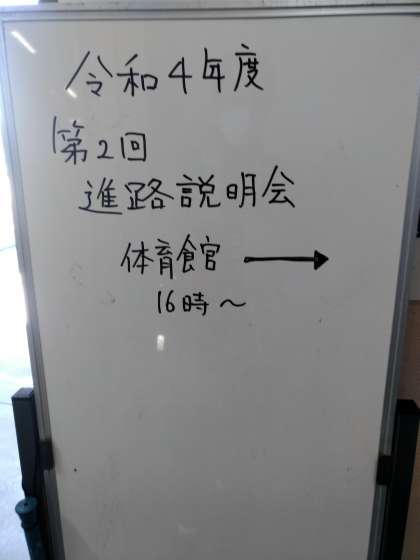 令和4年度
第2回
進路説明会
体育館 →
16時〜